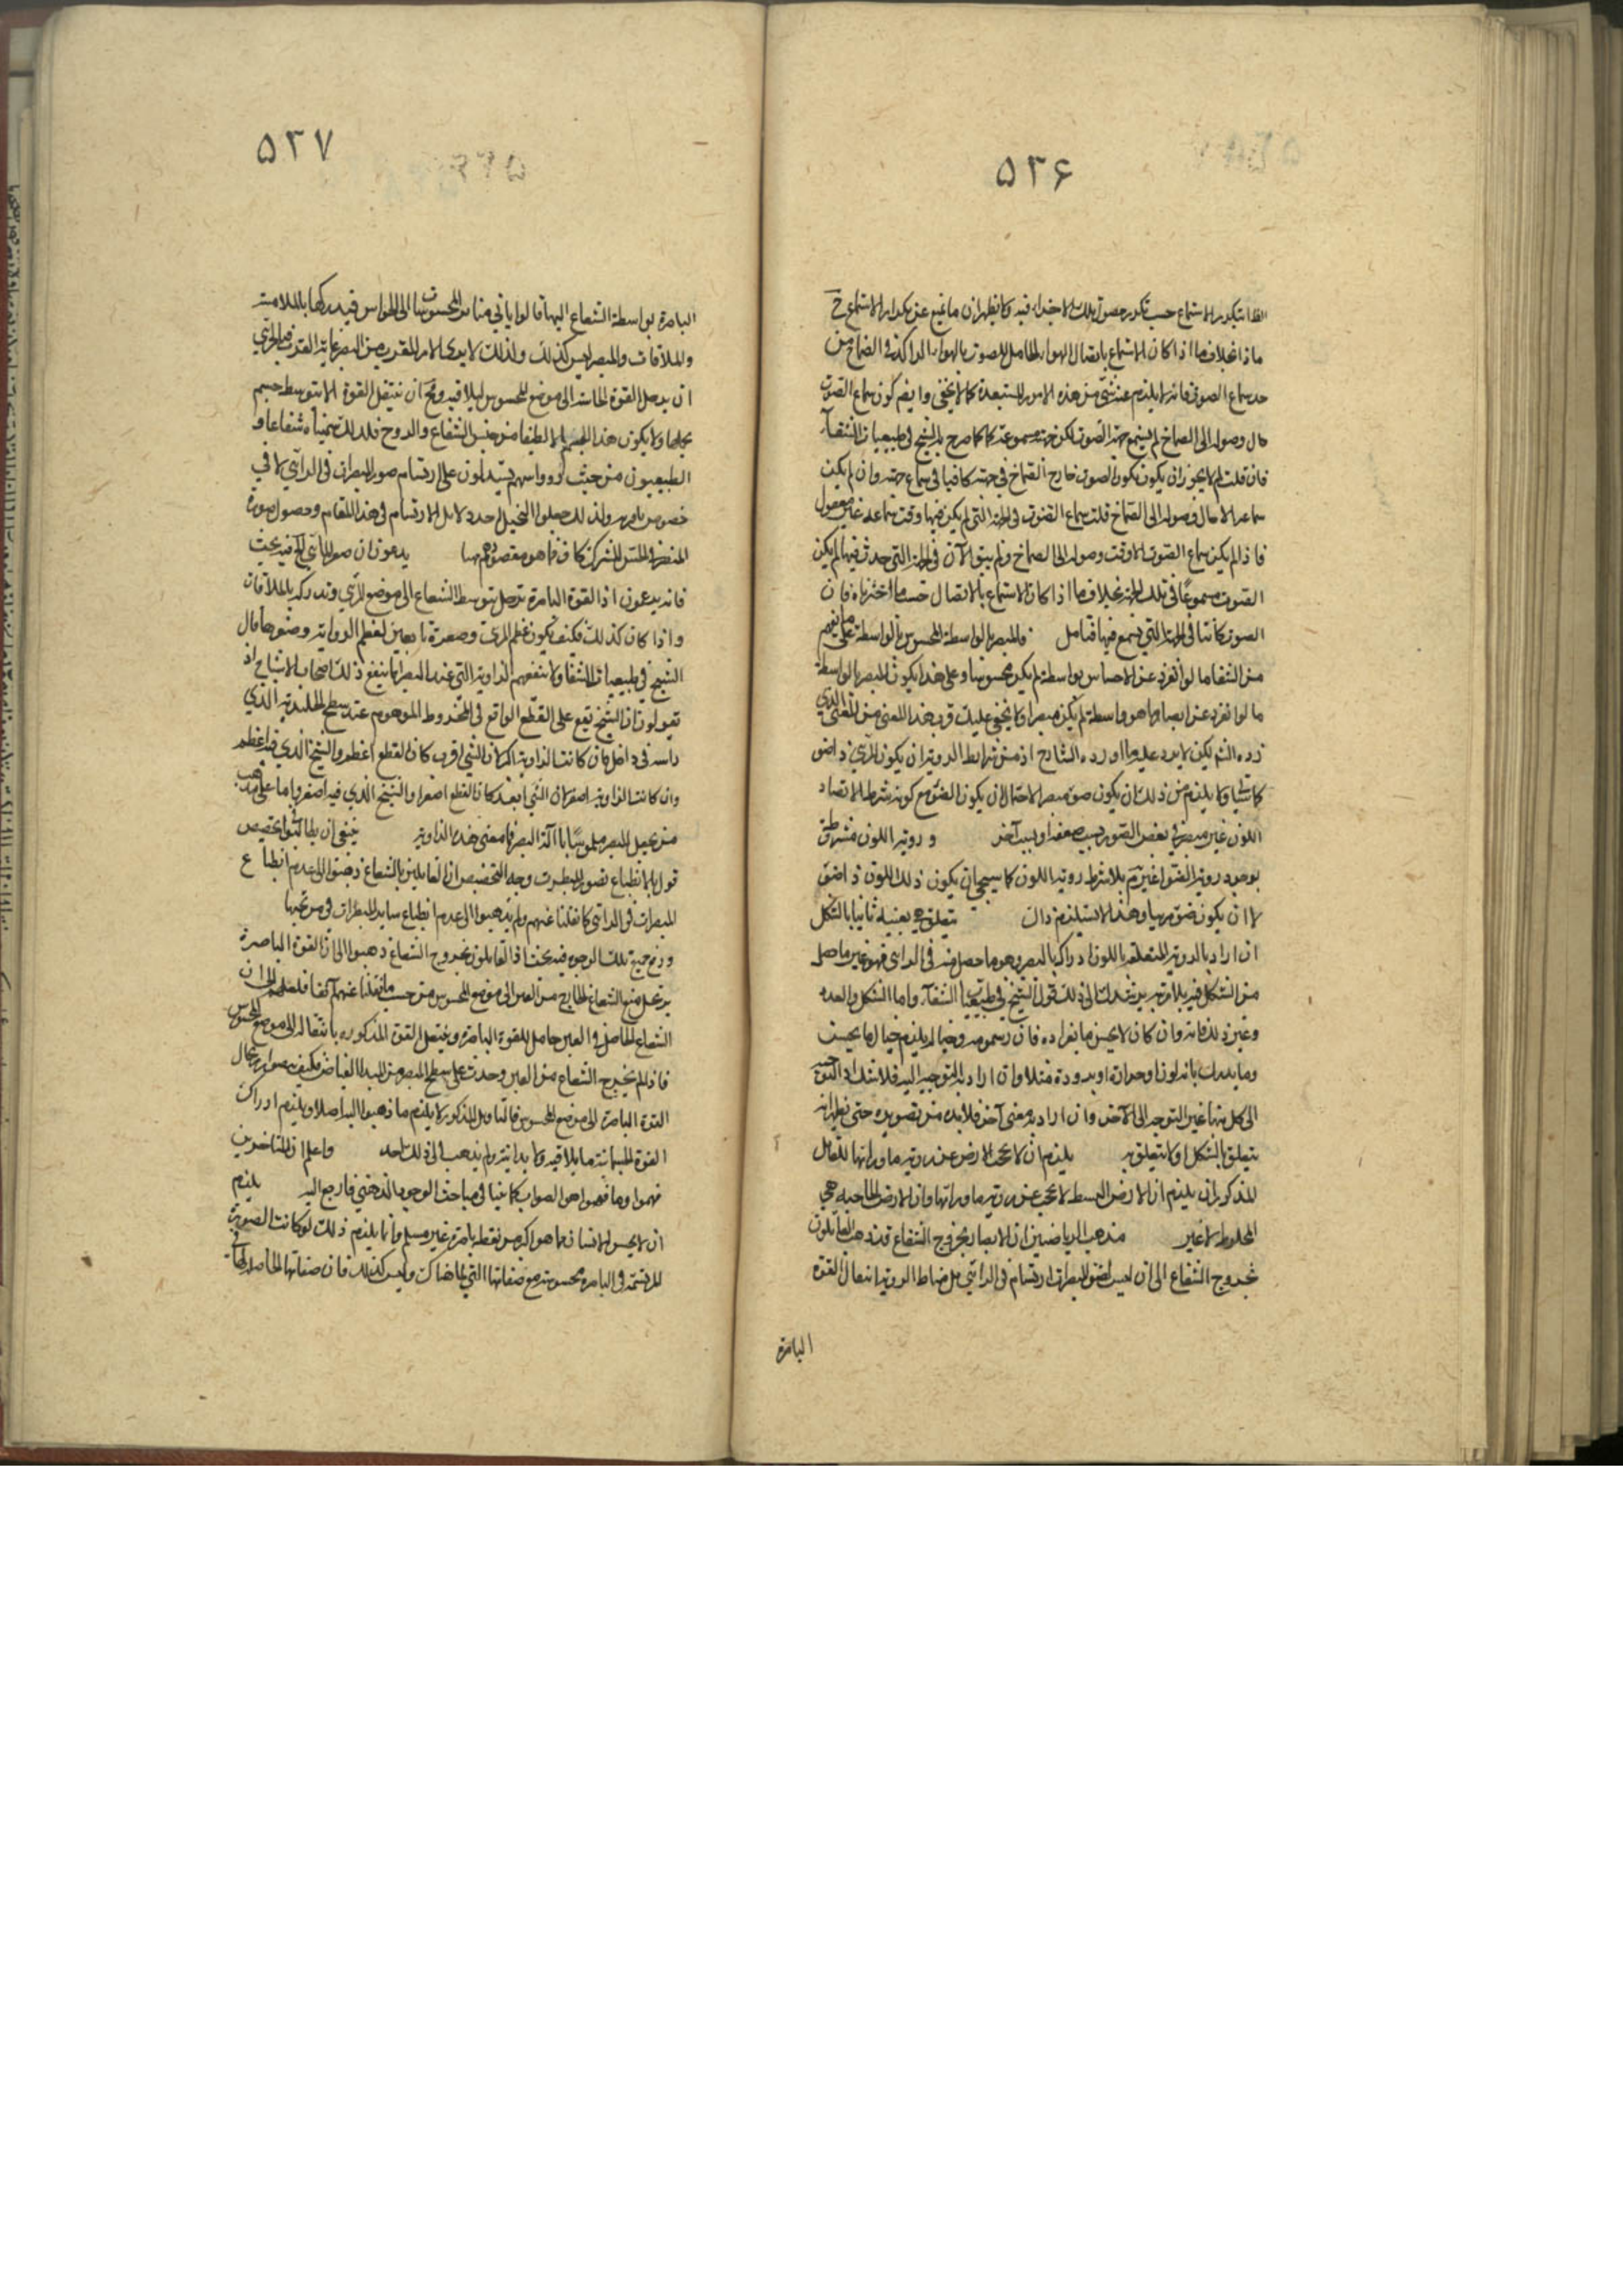 ۵۳۶
ما ذا بخلاف ما اذا كان الاستماع باتصال الهواء الحامل للصوت بالهواء الراكد في الصماخ من
حد سماع الصوت فانه لا يلزم عنه شئ من هذه الامور المستبعدة كما لا يخفى وايضا كون سماع الصوت
حال وصوله الى الصماخ لم يسمع جهة الصوت لكن جهته مسموعة كما صرح به الشيخ في طبيعيات الشفاء
فان قلت لم لا يجوز ان يكون كون الصوت خارج الصماخ في جهته كافيا في سماع جهته وان لم يكن
سماعه الا حال وصوله الى الصماخ قلت سماع الصوت في الجهة التي لم يكن فيها وقت سماعه غير معقول
فاذا لم يكن سماع الصوت الا وقت وصوله الى الصماخ ولم يبق الآن في الجهة التي حدث فيها لم يكن
الصوت مسموعا في تلك الجهة بخلاف ما اذا كان الاستماع بالاتصال حسبما اخترناه فان
الصوت كائنا في الجهة التي يسمع فيها فتأمل فالمبصر بالواسطة المحسوس بالواسطة على ما يفهم
من الشفا ما لو انفرد عن الاحساس بواسطة لم يكن محسوسا وعلى هذا يكون المبصر بالواسطة
ما لو انفرد عن ابصار ما هو واسطة لم يكن مبصرا ولا يخفى عليك قرب هذا المعنى من المعنى الذي
اللون غير مبصر في بعض الصور بسبب ضعفه او بسبب آخر ورؤية اللون مشروطة
بوجود رؤية الضوء غير بلا شرط رؤية اللون كما سيجئ ان يكون ذلك اللون ذا ضوء
لا ان يكون ضوء مرئيا وهذا لا يستلزم ذاك يتعلق هي بعينه ثانيا بالشكل
ان اراد بالرؤية المتعلقة باللون ادراكه بالبصر وهو ما حصل منه في الرائي فهو غير ما حصل
من الشكل فيه بلا مرية يرشدك الى ذلك قول الشيخ في طبيعيات الشفاء واما الشكل والعدد
وغير ذلك فانه وان كان لا يحس بانفراده فان رسمه وخياله يلزم خيال ما يحس
وما يدرك بانه لون او حرارة او برودة مثلا وان اراد به التوجه اليه فلا شك ان التوجه
الى كل منها غير التوجه الى الآخر وان اراد به معنى آخر فلا بد من تصويره حتى يظهر انه
يتعلق بالشكل او لا يتعلق به يلزم ان لا تحجب الارض عن رؤية ما ورائها للقائل
المذكور ان يلزم ان الارض البسيط لا تحجب عن رؤية ما ورائها وان الارض الحاجبة هي
المخلوط لا غير مذهب الرياضيين ان الابصار بخروج الشعاع قد ذهب القائلون
بخروج الشعاع الى ان ليس لضوء المبصرات ارتسام في الرائي بل مناط الرؤية اتصال القوة
الباصرة
۵۳۷
الباصرة بواسطة الشعاع اليها قالوا ياتي منا من المحسوسات الى الحواس فيدركها بالملامسة
والملاقات والمبصر ليس كذلك ولذلك لا يدرك الامر المقرب من البصر غاية القرب
ان يدخل القوة الحاسة الى موضع المحسوس ليلاقيه ومح ان ينتقل القوة الا بتوسط جسم
يحملها ولا يكون هذا الجسم الا لطيفا من جنس الشعاع والروح فلذلك سميناه شعاعا و
الطبيعيون من حيث يستدلون على ارتسام صور المبصرات في الرائي لا في
خصوص باصرة ولذلك جعلوا التخيل احد دلائل الارتسام في هذا المقام وحصول صورة
المبصر في الحس المشترك كاف فما هو مقصودهم هنا يدعون ان فيه بحث
فانه يدعون ان القوة الباصرة ترحل بتوسط الشعاع الى موضع المرئي وتدركه بالملاقات
واذا كان كذلك فكيف يكون عظم المرئي وصغره تابعين لعظم الزواية وصغرها قال
الشيخ في طبيعيات الشفا ولا تنفعهم الزاوية التي عند البصر انما ينفع ذلك اصحاب الاشباح اذ
يقولون ان الشبح يقع على القطع الواقع في المخروط الموهوم عند سطح الجليدية الذي
رأسه في داخل فان كانت الزاوية اكبر لان الشئ اقرب كان القطع اعظم والشبح الذي فيه اعظم
وان كانت الزاوية اصغر لان الشئ ابعد كان القطع اصغر والشبح الذي فيه اصغر واما على مذهب
من يجعل المبصر ملموسا بآلة البصر فما معنى هذه الزاوية ينبغي ان يطالبوا بتخصيص
قول بالانطباع بصور المبصرات وجه التخصيص ان القائلين بالشعاع ذهبوا الى عدم انطباع
المبصرات في الرائي كما نقلنا عنهم ولم يذهبوا الى عدم انطباع ساير المبصرات
تلك الوجوه فيه بحث اذ القائلون بخروج الشعاع ذهبوا الى ان القوة الباصرة
الشعاع الخارج من العين الى موضع المحسوس من حسب ما نقلنا عنهم آنفا
الشعاع الحاصل في العين حامل للقوة الباصرة وينتقل القوة المذكورة بانتقاله الى موضع المحسوس
فاذا لم يخرج الشعاع من العين وحدث على سطح المبصر من المبدأ الفياض فكيف يتصور ارتحال
القوة الباصرة الى موضع المحسوس فالتاويل المذكور لا يلزم ما ذهبوا اليه اصلا ويلزم ادراك
القوة الجسمانية ما يلاقيه ولا يدانيه ولم يذهب الى ذلك احد واعلم ان المتاخرين
فهموا وما فهموا هو الصواب كما بينا في مباحث الوجود الذهني فارجع اليه يلزم
ان لا يحس الانسان بما هو اكبر من نقطة باصرته غير مسلم وانما يلزم ذلك لو كانت الصورة
المرتسمة في الباصرة محسوسة مع صفاتها التي لها هناك وليس كذلك فان صفاتها الحاصلة لها